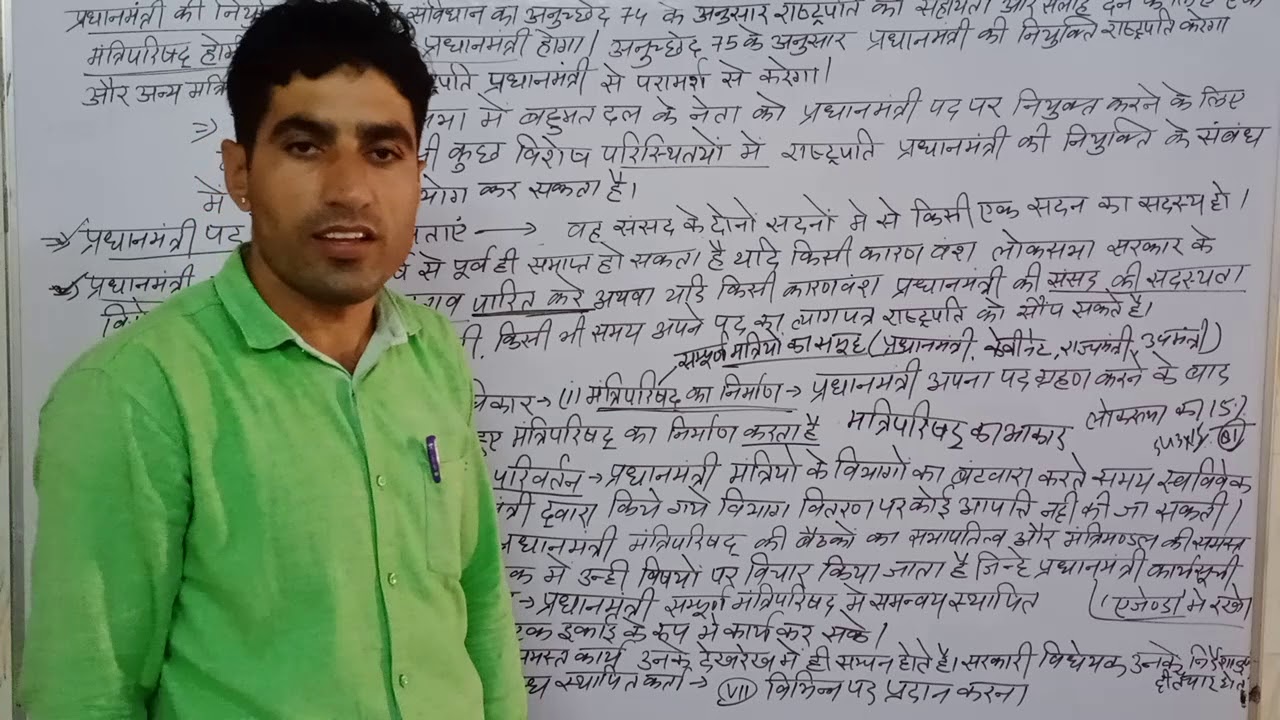 प्रधानमंत्री की संविधान का अनुच्छेद 74 के अनुसार राष्ट्रपति को सहायता और सलाह देने के लिए एक
मंत्रिपरिषद होगी प्रधानमंत्री होगा। अनुच्छेद 75 के अनुसार प्रधानमंत्री की नियुक्ति राष्ट्रपति करेगा
और अन्य प्रधानमंत्री से परामर्श से करेगा।
⇒ में बहुमत दल के नेता को प्रधानमंत्री पद पर नियुक्त करने के लिए
कुछ विशेष परिस्थितयों में राष्ट्रपति प्रधानमंत्री की नियुक्ति के संबंध
में कर सकता है।
⇒ प्रधानमंत्री पद → वह संसद के दोनों सदनों मे से किसी एक सदन का सदस्य हो।
प्रधानमंत्री से पूर्व ही समाप्त हो सकता है यदि किसी कारण वंश लोकसभा सरकार के
पारित करे अथवा यदि किसी कारणवंश प्रधानमंत्री की संसद की सदस्यता
किसी भी समय अपने पद का त्यागपत्र राष्ट्रपति को सौप सकते है।
सम्पूर्ण मंत्रियो का समूह (प्रधानमंत्री, केबीनेट, राज्यमंत्री, उपमंत्री)
→ (i) मंत्रिपरिषद का निर्माण → प्रधानमंत्री अपना पद ग्रहण करने के बाद
मंत्रिपरिषद् का निर्माण करता है मंत्रिपरिषद् का आकार लोकसभा का 15%
परिवर्तन → प्रधानमंत्री मंत्रियो के विभागों का बंटवारा करते समय स्वविवेक
द्वारा किये गये विभाग वितरण पर कोई आपत्ति नही की जा सकती।
प्रधानमंत्री मंत्रिपरिषद् की बैठकों का सभापतित्व और मंत्रिमण्डल की समस्त
में उन्ही विषयों पर विचार किया जाता है जिन्हे प्रधानमंत्री कार्यसूची
→ प्रधानमंत्री सम्पूर्ण मंत्रिपरिषद मे समन्वय स्थापित (एजेण्डा) मे रखे
एक इकाई के रूप मे कार्य कर सके।
समस्त कार्य उनके देखरेख मे ही सम्पन होते है। सरकारी विधेयक उनके
ही तैयार होते
स्थापित कर्ता → (VII) विभिन्न पद प्रदान करना